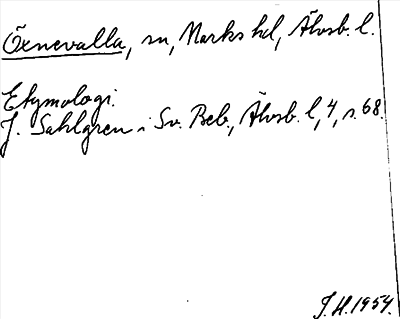 Öxnevalla, sn, Marks hd, Älvsb. l.
Etymologi.
J. Sahlgren i Sv. Beb., Älvsb. l, 4, s. 68.
J. H. 1954.